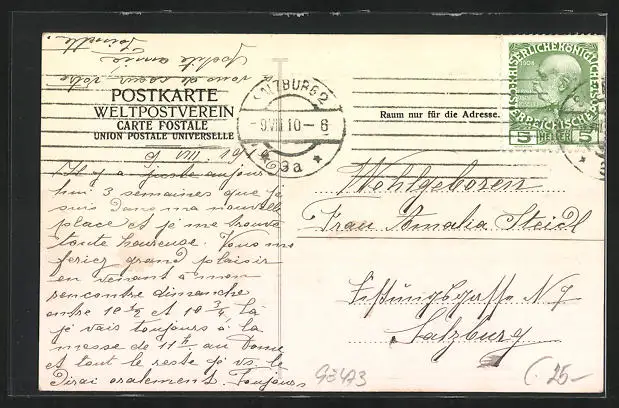 à vous de coeur votre
petite amie
POSTKARTE
WELTPOSTVEREIN
CARTE POSTALE
UNION POSTALE UNIVERSELLE
SALZBURG 2
9 VIII 10 - 6
* 3a *
Raum nur für die Adresse.
KAISERLICHE KÖNIGLICHE
1908
ÖSTERREICHISCHE
5 HELLER 5
9. VIII. 1910
Il y a juste aujour
hui 3 semaines que je
suis dans ma nouvelle
place et je me trouve
toute heureuse. Vous me
feriez grand plaisir
en venant à mon
rencontre dimanche
entre 10 1/2 et 10 3/4 là
je vais toujours à la
messe de 11 h. au Dome
et tout le reste je vs le
dirai oralement. Toujours
Wohlgeboren
Frau Amalia Steidl
Salzburg
25-